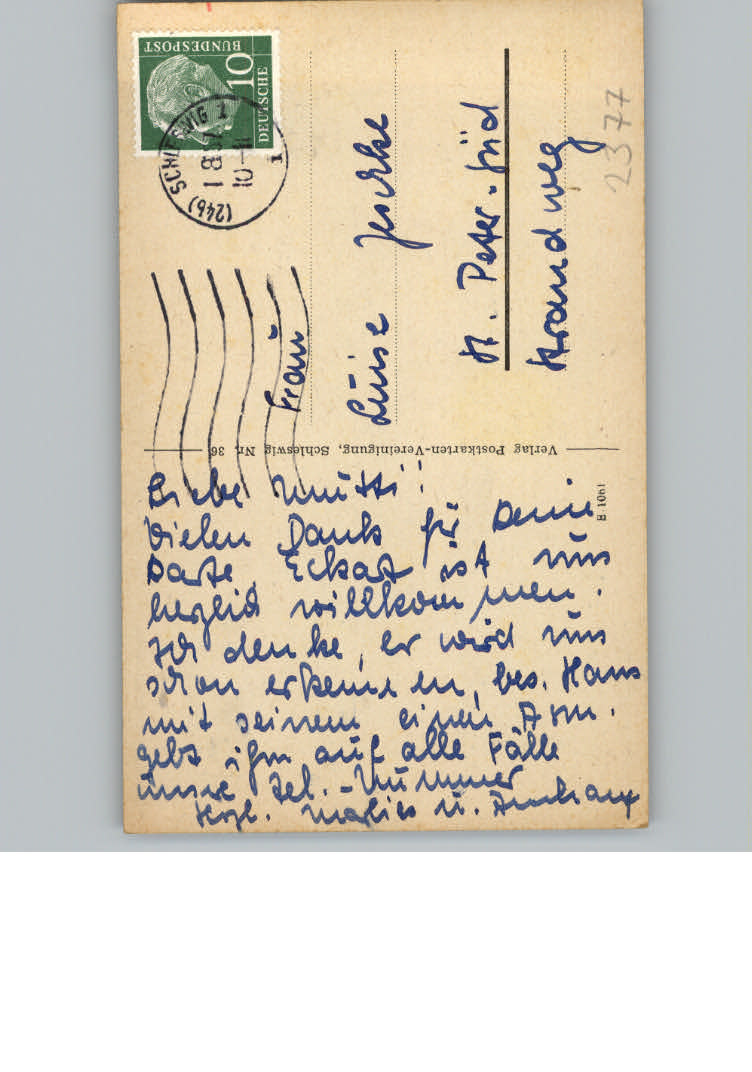 DEUTSCHE
BUNDESPOST
10
(24b) SCHLESWIG 1
10-11
Frau
Luise Jeschke
St. Peter-Süd
Strandweg
2377
Verlag Postkarten-Vereinigung, Schleswig Nr. 36
B 1061
Liebe Mutti!
Vielen Dank für Deine
Karte. Eckart ist uns
herzlich willkommen.
Ich denke, er wird uns
schon erkennen, bes. Hans
mit seinem einen Arm.
Gebt ihm auf alle Fälle
unsre Tel.-Nummer
Herzl. Marlies u.